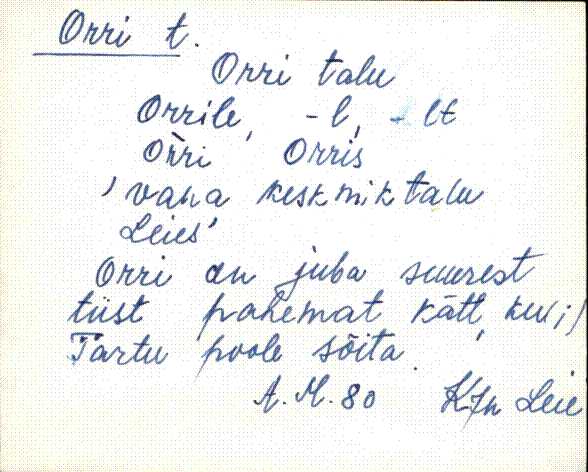 Orri t.
Orri talu
Orrile, -l, -lt
Orri Orris
'vana keskmik talu
Leies'
Orri on juba suurest
tüst pahemat kätt, kui
Tartu poole sõita.
A. M. 80 KJn Leie